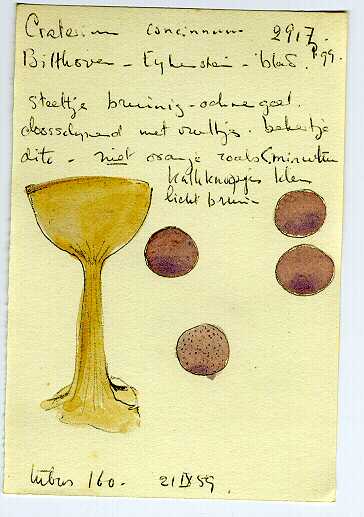 Craterium concinnum 2917
Bilthoven - Eykenstein - blad. P 99.
steeltje bruinig - okergeel.
doorschijnend met vuiltjes. bekertje
dito - niet oranje zoals C. minutum
Kalkknoopjes klein
licht bruin
tubus 160. 21 IX 89.